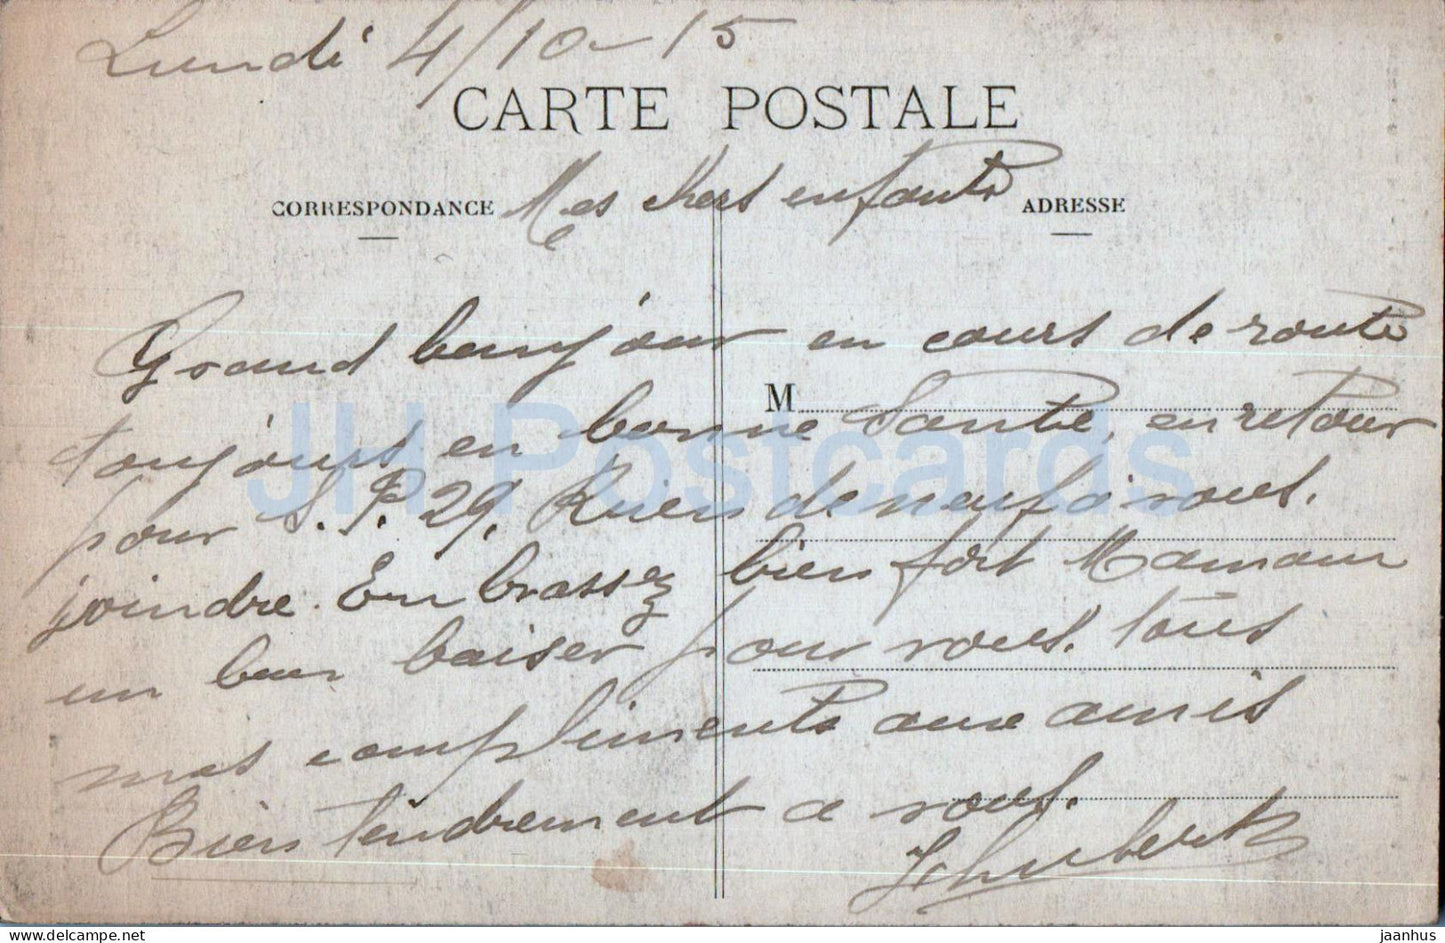 Lundi 4/10-15
CARTE POSTALE
CORRESPONDANCE Mes chers enfants ADRESSE
Grand bonjour en cours de route
M
toujours en bonne santé, en retour
pour S.P. 29, Rien de neuf à vous.
joindre. Embrassez bien fort Maman
un bon baiser pour vous. tous
mes compliments aux amis
Bien tendrement a vous.
JH Postcards
www.delcampe.net
jaanhus